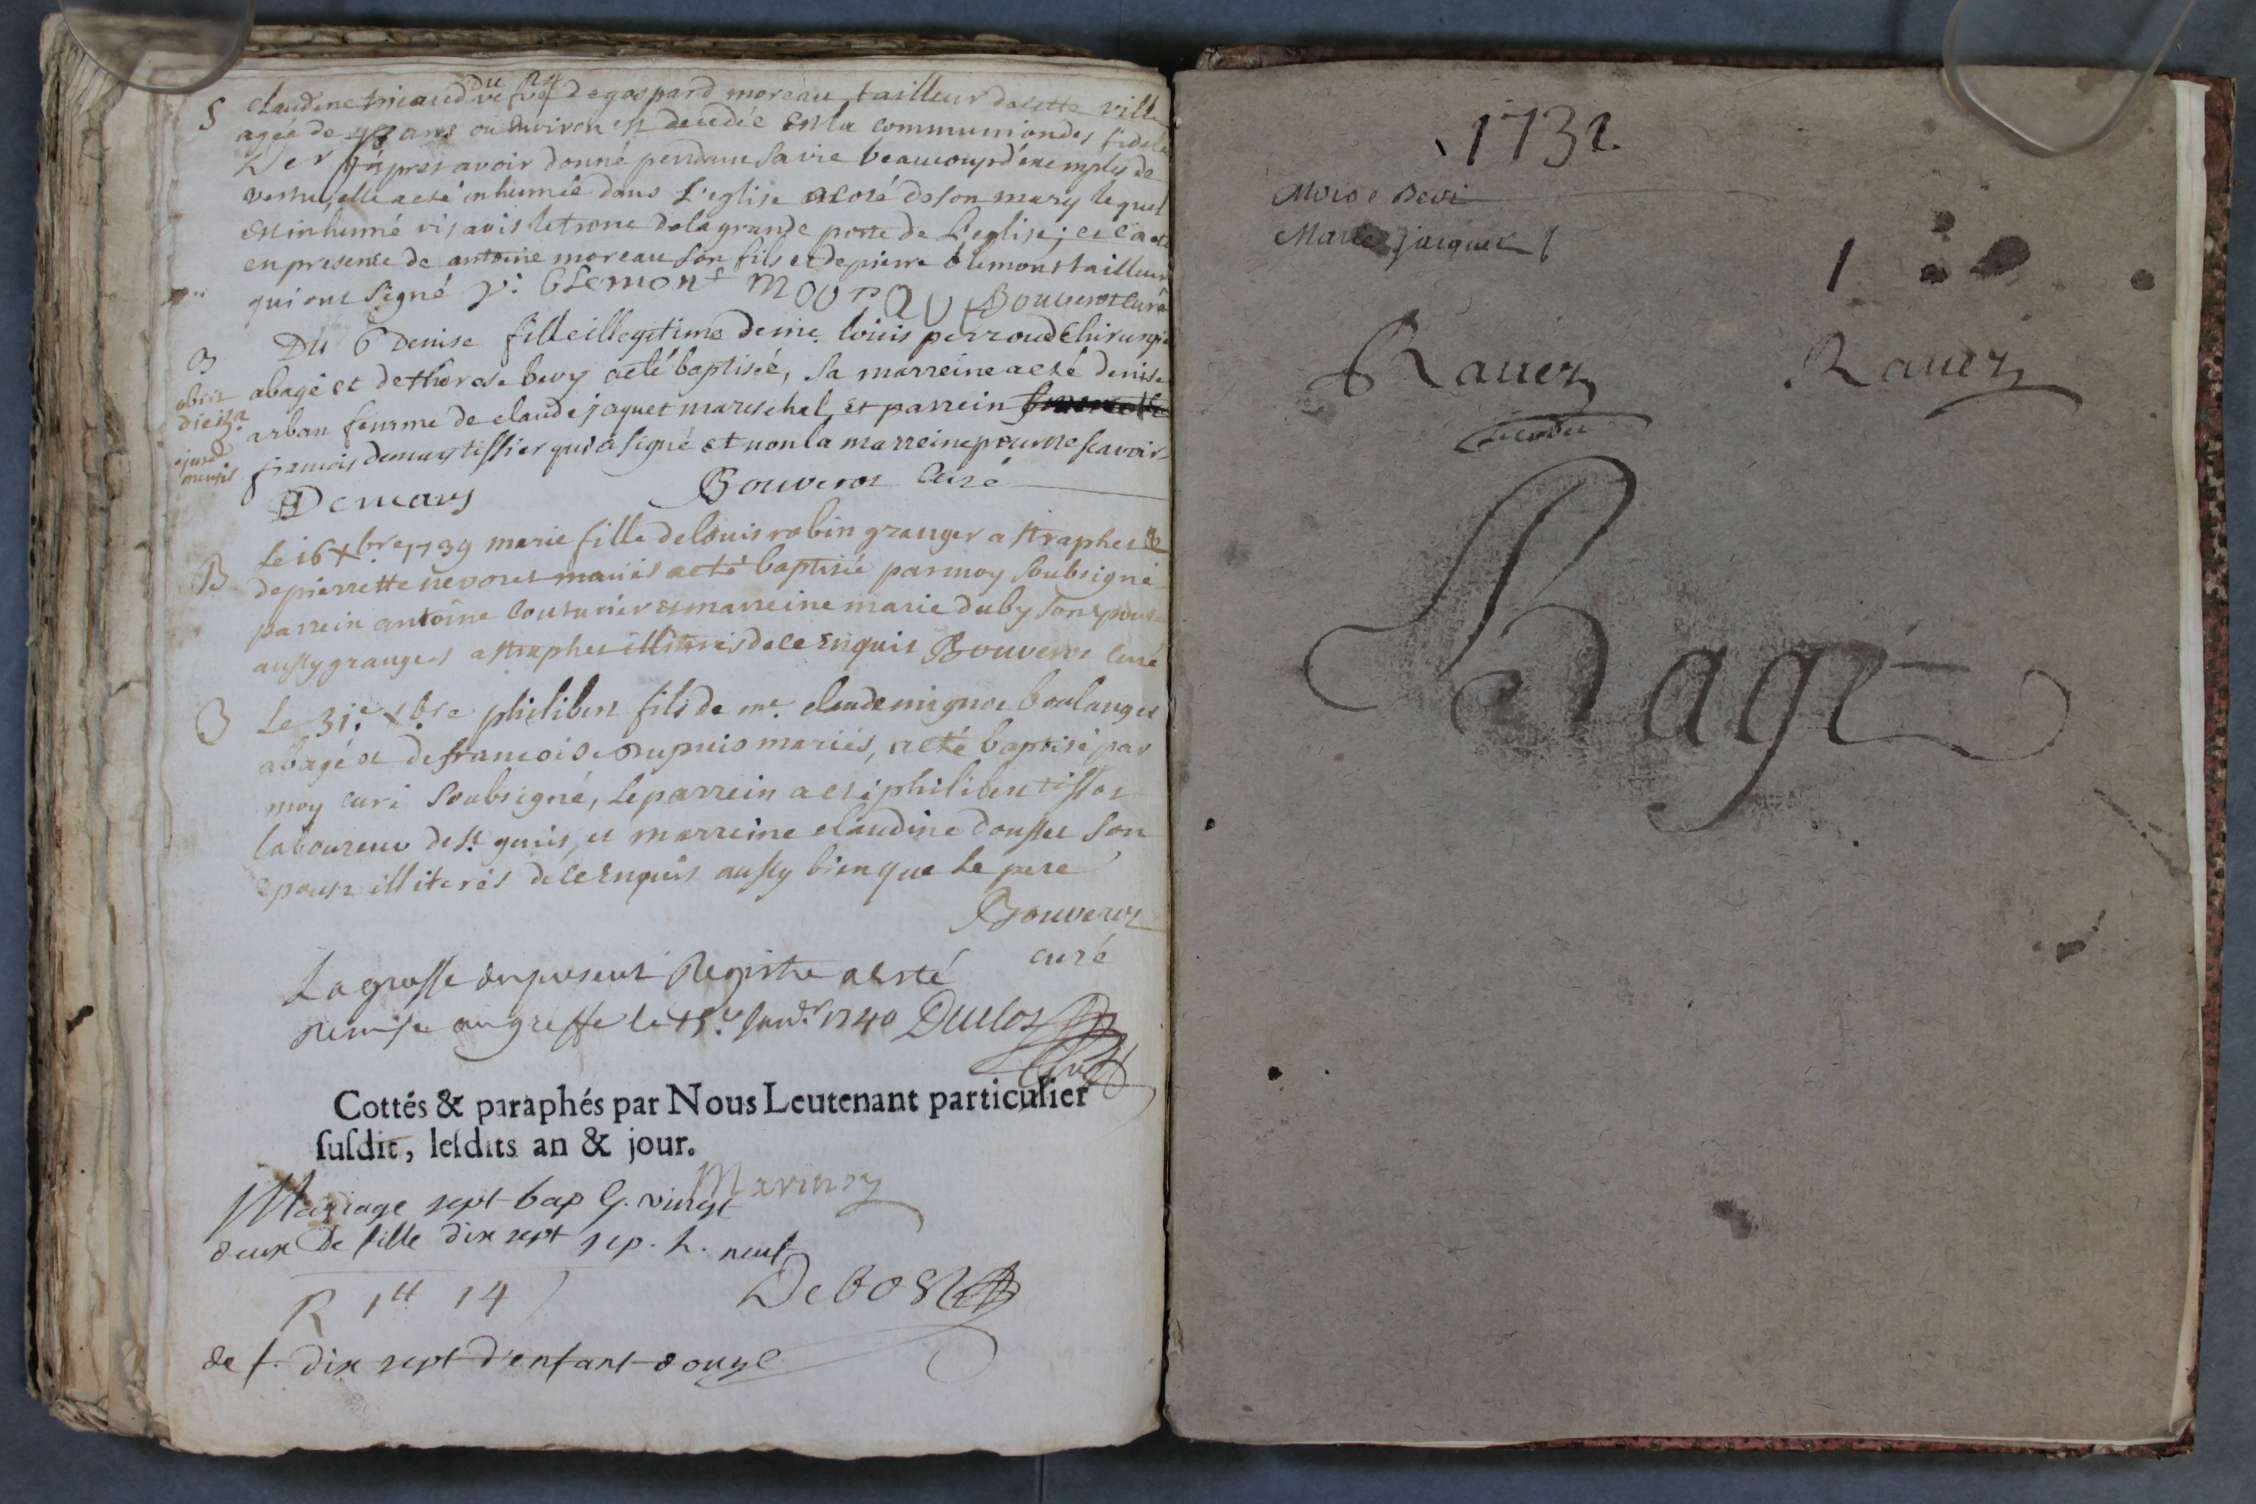 du 24
S claudine vefve de gaspard moreau tailleur de cette ville
agée de ans ou environ est decedée en la communion des fidels
apres avoir donné pendant sa vie beaucoup d'exemples de
vertu, elle a eté inhumée dans l'eglise a coté de son mary lequel
est inhumé vis a vis le trone de la grande porte de l'eglise; et ca eté
en presence de antoine moreau son fils et de pierre clemont tailleur
qui ont signé p: Clemont morau Bouverot curé
B Du 6 denise fille illegitime de me. louis perroud chirurgien
abagé et de therese bevy a eté baptisée, sa marreine a eté denise
obiit die
arban femme de claude jaquet mareschal, et parrein
francois demars tissier qui a signé et non la marreine pour ne scavoir
ejusd mensis
Demars Bouverot curé
B Le 16 xbre 1739 marie fille de louis robin granger a straphes et
de pierrette nevoret mariés a eté baptisée par moy soubsigné
parrein antoine couturier et marreine marie duby son epouse
aussy grangers a straphes illiterés de ce enquis Bouverot curé
B Le 31e. xbre philibert fils de me. claude mignot boulanger
abagé et de francoise dupuis mariés, a eté baptisé par
moy curé soubsigné, le parrein a eté philibert tissot
laboureur de st genis, et marreine claudine dousset son
epouse illiterés de ce enquis aussy bien que le pere
Bouverot
curé
La grosse du present Registre a esté
remise au greffe le 15e Janvr 1740 Duclos
Cottés & paraphés par Nous Leutenant particulier
susdit, lesdits an & jour.
Mariage sept bap G. vingt
deux de fille dix sept sep. h. neuf
R 1tt 14
Debost
de f. dix sept d'enfant douze
1732
Marie jacquet
1
Rauez Rauez
Bagé